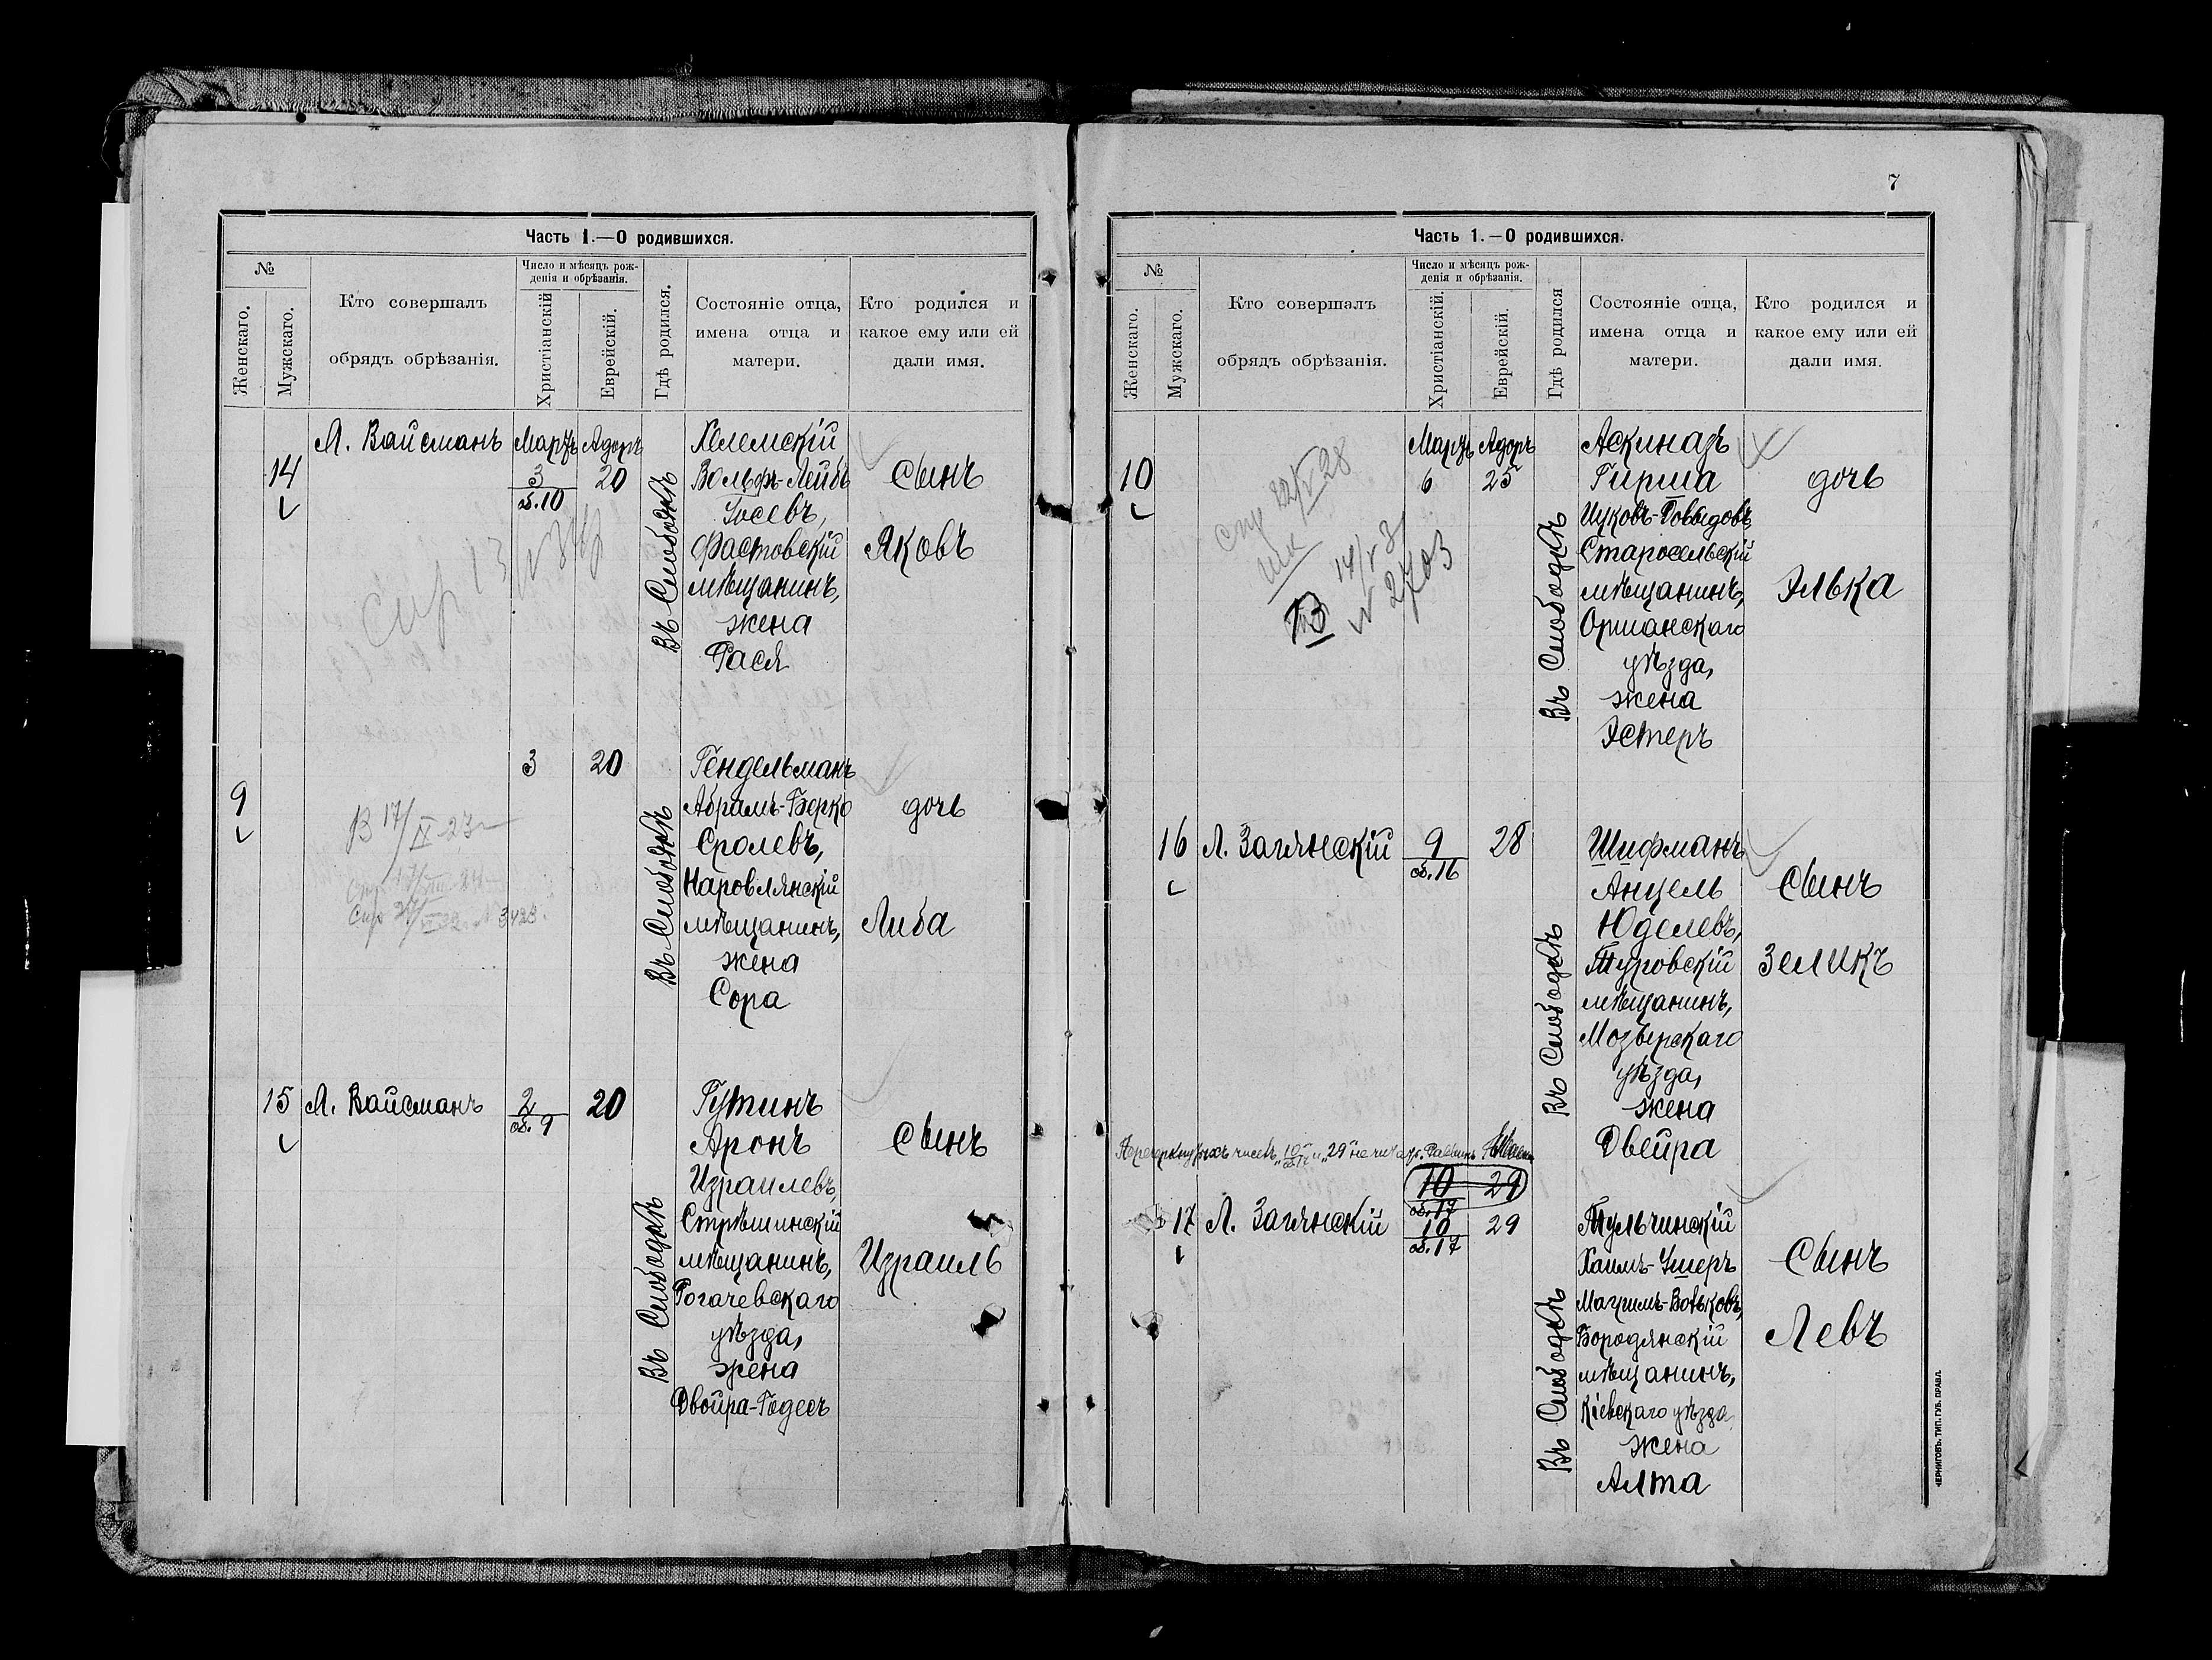 Часть 1.—О родившихся.
№
Женскаго.
Мужскаго.
Кто совершалъ
обрядъ обрѣзанія.
Число и мѣсяцъ рож-
денія и обрѣзанія.
Христіанскій
Еврейскій.
Гдѣ родился.
Состояніе отца,
имена отца и
матери.
Кто родился и
какое ему или ей
дали имя.
14
Л. Вайсманъ
Мартъ
3
об. 10
Адоръ
20
Въ Слободкѣ
Хелемскій
Вольфъ-Лейбъ
Іосевъ,
Фастовскій
мѣщанинъ,
жена
Рася
сынъ
Яковъ
9
3
20
Въ Слободкѣ
Гендельманъ
Абрамъ-Берко
Сролевъ,
Наровлянскій
мѣщанинъ,
жена
Сора
дочь
Либа
В 17/IX 23
15
Л. Вайсманъ
2
об. 9
20
Въ Слободкѣ
Гутинъ
Аронъ
Израилевъ,
Стрѣшинскій
мѣщанинъ,
Рогачевскаго
уѣзда,
жена
Двойра-Годесъ
сынъ
Израиль
7
Часть 1.—О родившихся.
№
Женскаго.
Мужскаго.
Кто совершалъ
обрядъ обрѣзанія.
Число и мѣсяцъ рож-
денія и обрѣзанія.
Христіанскій.
Еврейскій.
Гдѣ родился
Состояніе отца,
имена отца и
матери.
Кто родился и
какое ему или ей
дали имя.
10
Мартъ
6
Адоръ
25
Въ Слободкѣ
Аскиназъ
Гирша
Ицковъ-Довыдовъ
Старосельскій
мѣщанинъ,
Оршанскаго
уѣзда,
жена
Эстеръ
дочь
Элька
№ 2703
16
Л. Загянскій
9
об. 16
28
Въ Слободкѣ
Шифманъ
Анцель
Юделевъ,
Туровскій
мѣщанинъ,
Мозырскаго
уѣзда,
жена
Двейра
сынъ
Зеликъ
10
об. 17
29
17
Л. Загянскій
10
об. 17
29
Въ Слободкѣ
Тульчинскій
Хаимъ-Ушеръ
Бородянскій
мѣщанинъ,
Кіевскаго уѣзда
жена
Алта
сынъ
Левъ
ЧЕРНИГОВЪ. ТИП. ГУБ. ПРАВЛ.